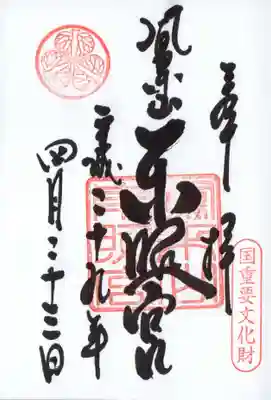 奉拝
国重要文化財
鳳来山東照宮
平成二十九年
四月二十三日